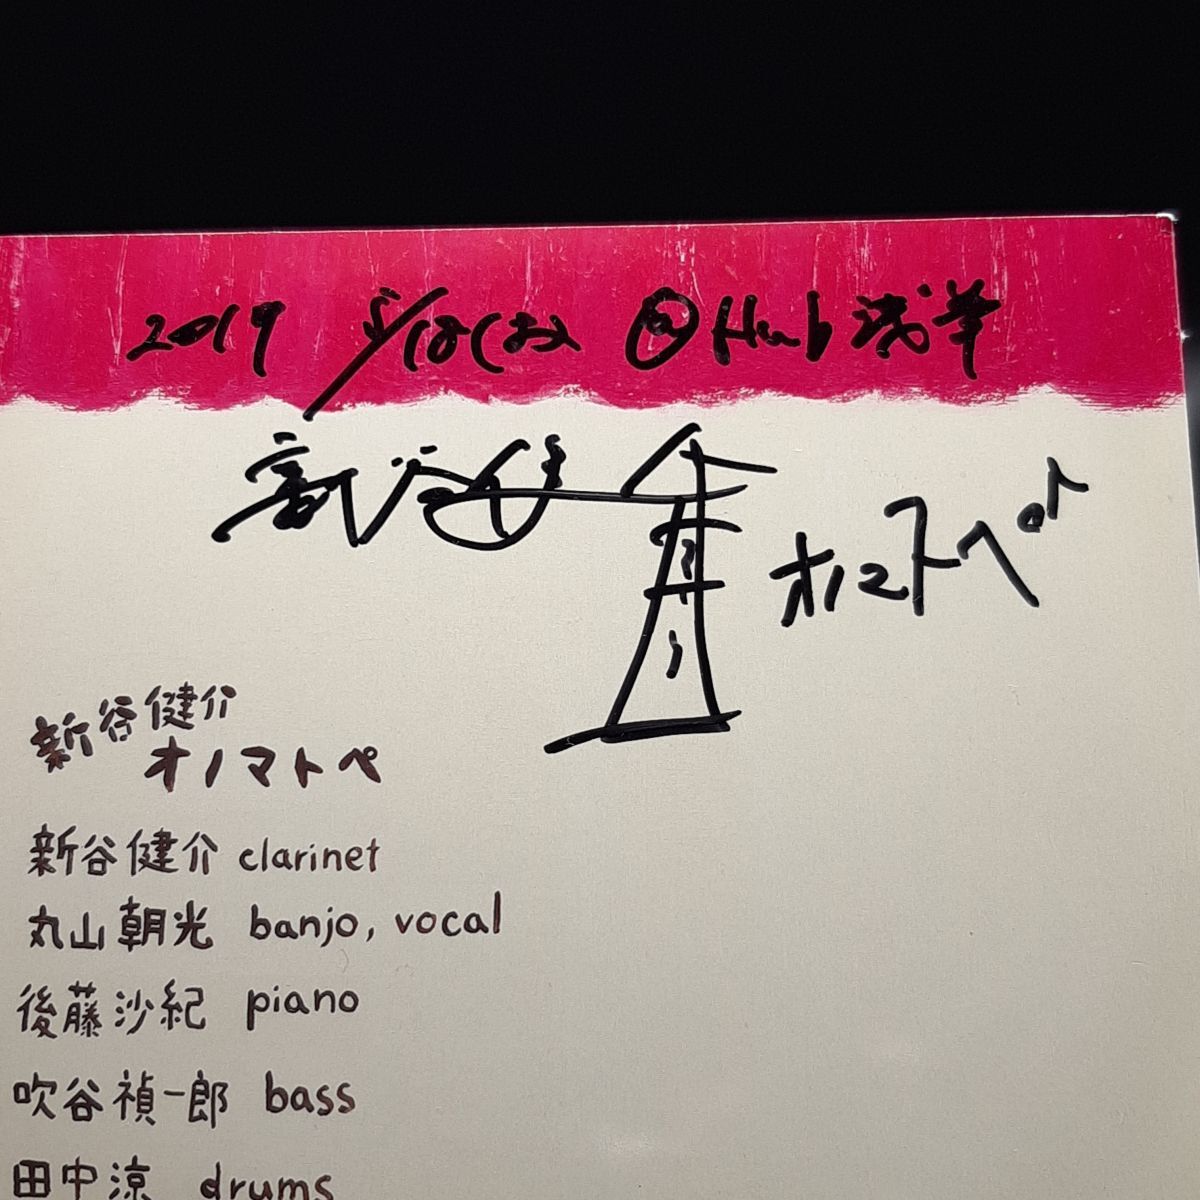 2019 5/18(土) @Hub浅草
新谷健介 オノマトペ
新谷健介
オノマトペ
新谷健介 clarinet
丸山朝光 banjo, vocal
後藤沙紀 piano
吹谷禎一郎 bass
田中涼 drums